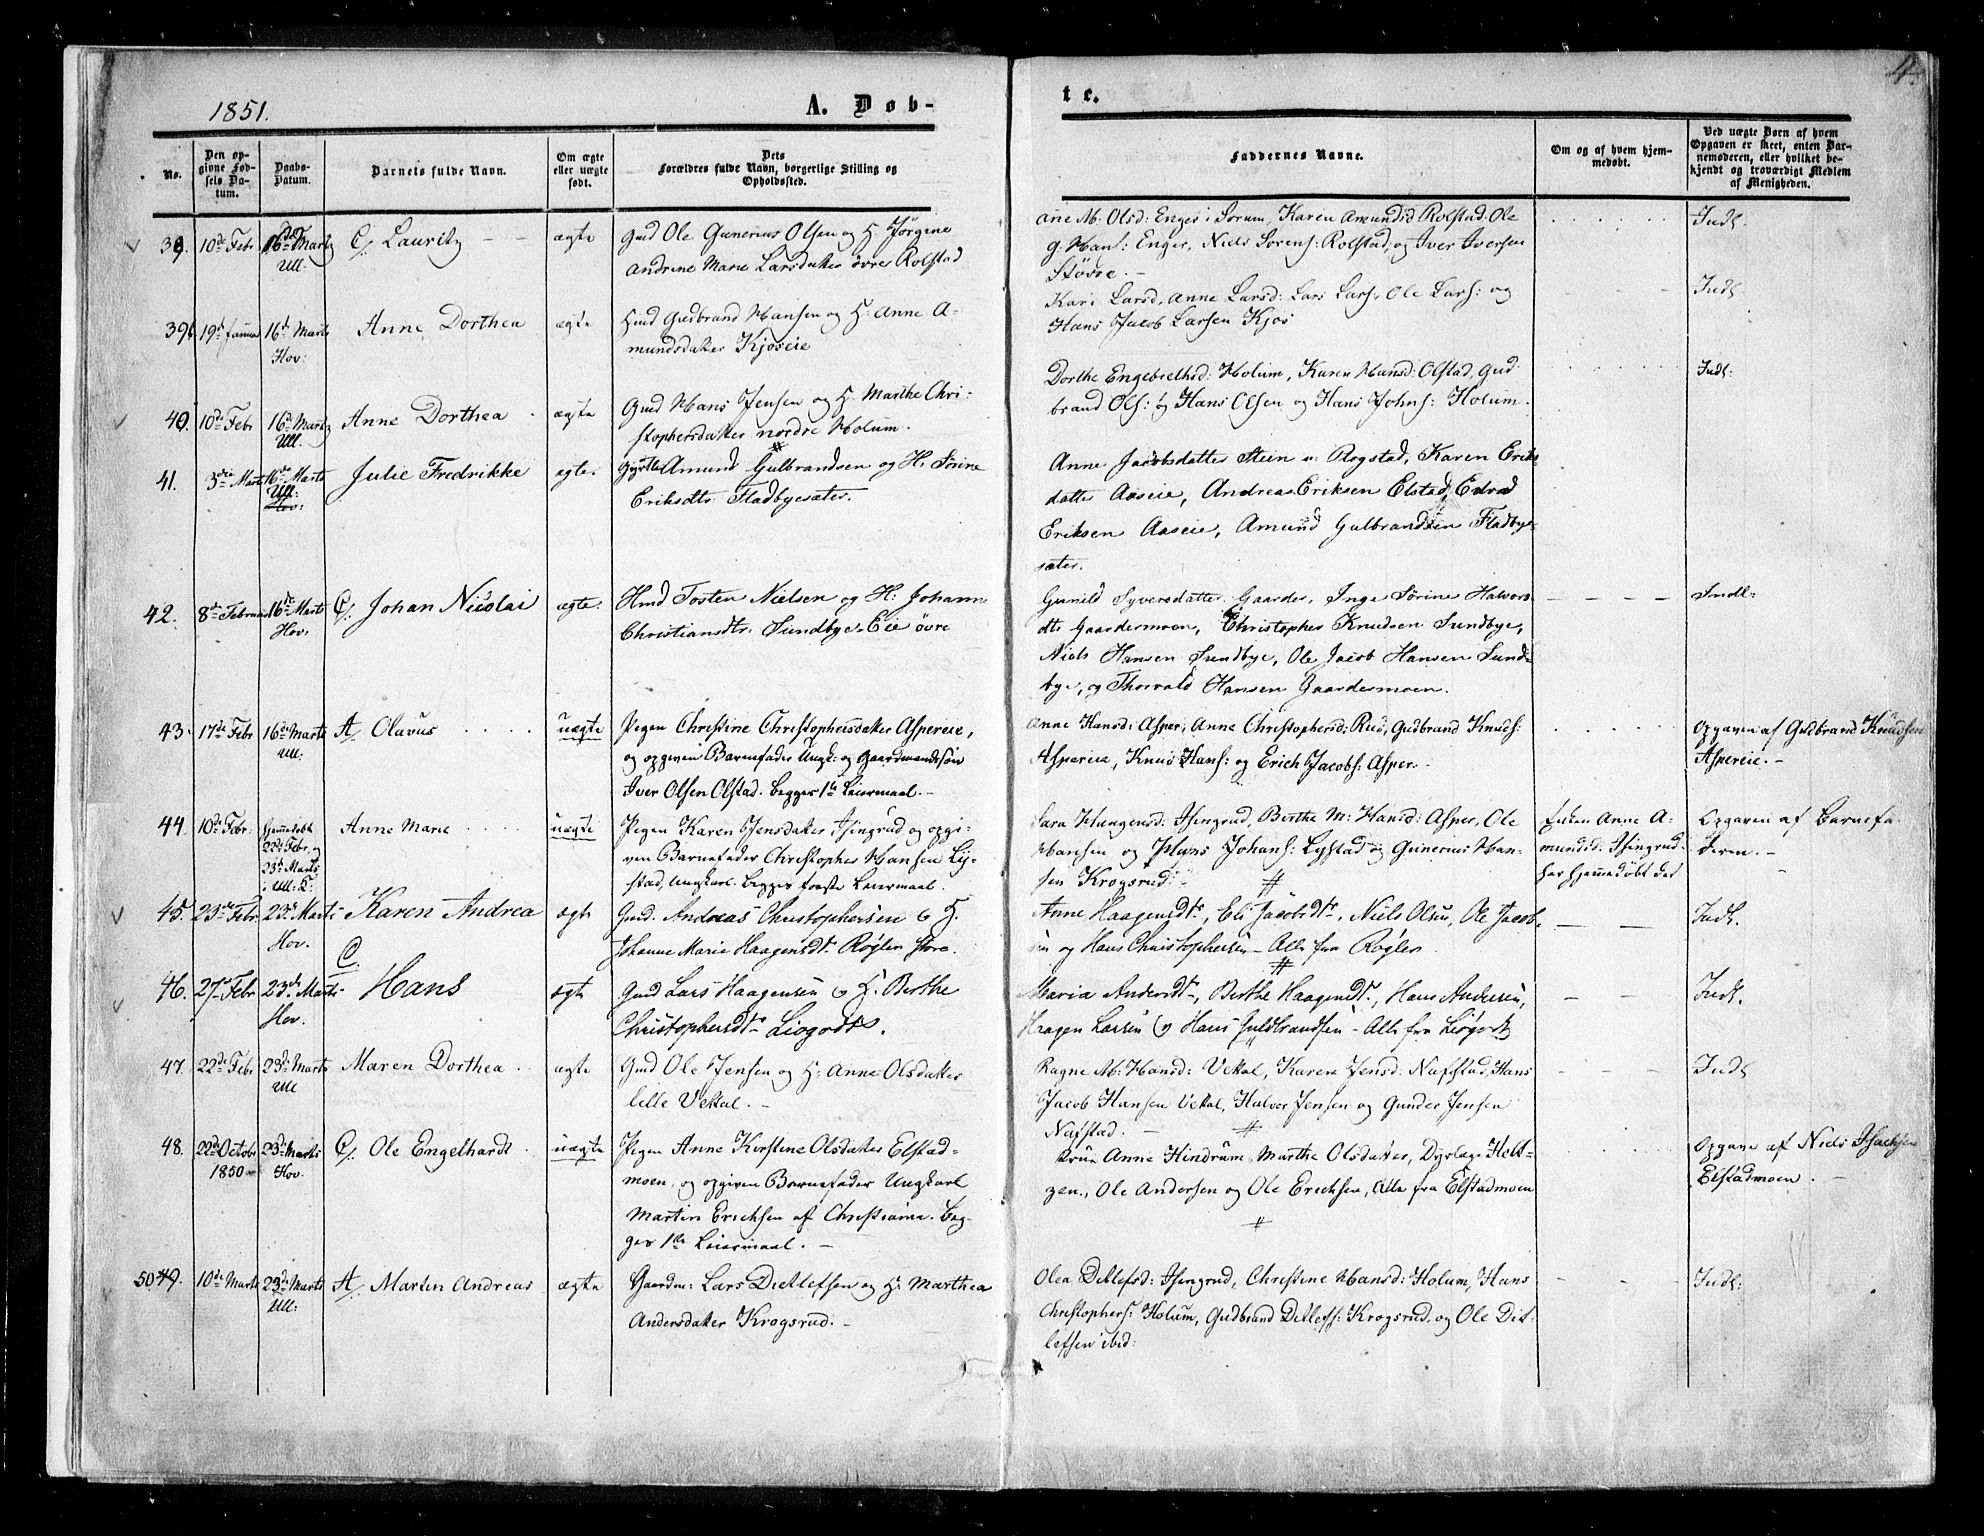 1851.
A. Døb-
te.
4.
No.
Den op-
givne Fød-
sels Da-
tum.
Daabs-
Datum.
Barnets fulde Navn.
Om ægte
eller uægte
født.
Dets
Forældres fulde Navn, borgerlige Stilling og
Opholdssted.
Faddernes Navne.
Om og af hvem hjem-
medøbt.
Ved uægte Børn af hvem
Opgaven er skeet, enten Bar-
nemoderen, eller hvilket be-
kjendt og troværdigt Medlem
af Menigheden.
39. 10de Febr 16de Marts C/. Lauritz - - ægte Gmd Ole Gunerius Olsen og H. Jørgine
Ull.
Andrine Marie Larsdatter øvre Rolstad
Ane M: Olsd: Enger i Sørum, Karen Amundsd Rolstad, Ole
G. Hans: Enger, Niels Sørens: Rolstad, og Iver Iversen
Støvre. -
Indl.
39b 19de Januar 16de Marts Anne Dorthea ægte Hmd Gudbrand Hansen og H: Anne A-
Hov:
mundsdatter Kjoseie
Kari Larsd, Anne Larsd: Lars Lars:, Ole Lars: og
Hans Jacob Larsen Kjos
Indl
40. 10de Febr 16de Marts Anne Dorthea ægte Gmd Hans Jensen og H. Marthe Chri-
Ull.
stophersdatter nordre Holum.
Dorthe Engebrethsd: Holum, Karen Hansd: Olstad, Gud-
brand Ols: og Hans Olsen og Hans Johns: Holum.
Indl:
41. 3die Marts 16de Marts Julie Fredrikke ægte. Amund Gulbrandsen og H. Sørine
Ull:
Hov:
Eriksdtr. Fladbyesæter.
Anne Jacobsdatter Stein u. Rogstad, Karen Eriks-
datter Aaseie, Andreas Eriksen Elstad,
Eriksen Aaseie, Amund Gulbrandsen Fladbye-
sæter.
42. 8de Februar 16de Marts C/. Johan Nicolai ægte. Hmd Tosten Nielsen og H: Johanne
Hov:
Christiansdtr. Sundbye-Eie øvre
Gunild Syversdatter Gaarder, Inge Sørine Halvors-
dtr Gaardermoen, Christopher Knudsen Sundbye,
Niels Hansen Sundbye, Ole Jacob Hansen Sund-
bye, og Thorvald Hansen Gaardermoen.
Indl:
43. 17de Febr 16de Marts A/. Olavus uægte Pigen Christine Christophersdatter Aspereie,
Ull.
og opgiven Barnefader Ungk: og Gaardmandssøn
Iver Olsen Olstad. Begges 1ste Leiermaal. -
Anne Hansd: Asper, Anne Christophersd: Rud, Gudbrand Knuds:
Aspereie, Knud Hans: og Erich Jacobs: Asper. -
Opgaven af Guldbrand Knudsen
Aspereie. -
44. 10de Febr. Hjemmedøbt
22de Febr. og
23de Marts
i Ull: K:
Anne Marie uægte Pigen Karen Jensdatter Isingrud og opgi-
ven Barnefader Christopher Hansen Ly-
stad, Ungkarl. Begges første Leiermaal.
Sara Haagensd: Isingrud, Berthe M: Hansd: Asper, Ole
Hansen og Hans Johans: Lystad og Gunerius Han-
sen Krogsrud.
Enken Anne A-
mundsd. Isingrud
har hjemmedøbt det
Opgaven af Barnefa-
deren. -
45. 23de Febr. 23de Marts Karen Andrea ægte Gmd. Andreas Christophersen & H.
Hov.
Johanne Marie Haagensdtr Røgler store.
Anne Haagensdtr, Eli Jacobsdtr, Niels Olsen, Ole Jacob-
sen og Hans Christophersen - Alle fra Røgler
Indl.
46. 27de Febr 23de Marts C. Hans ægte Gmd Lars Haagensen & H. Berthe
Hov.
Christophersdtr Liøgodt.
Maria Andersdtr, Berthe Haagensdtr, Hans Andersen,
Haagen Larsen & Hans Guldbrandsen - Alle fra Liøgodt
Indl.
47. 22de Febr 23de Marts Maren Dorthea ægte Gmd Ole Jensen og H: Anne Olsdatter
Ull
lille Vekal. -
Ragne M: Hansd: Vekal, Karen Jensd: Nafstad, Hans
Jacob Hansen Vekal, Halvor Jensen og Gunder Jensen
Nafstad. -
Indl
48. 22de Octobr 23de Marts C/. Ole Engelhardt uægte Pigen Anne Kirstine Olsdatter Elstad-
1850 Hov.
moen, og opgiven Barnefader Ungkarl
Martin Erichsen af Christiania. Beg-
ges 1ste Leiermaal. -
Frue Anne Hindrum, Marthe Olsdatter, Dyrlæge Holt-
zen., Ole Andersen og Ole Erichsen, Alle fra Elstadmoen
Opgave af Niels Isachsen
Elstadmoen. -
50 49. 10de Marts 23de Marts A/. Martin Andreas ægte Gaardm: Lars Ditlefsen og H: Marthea
Ull:
Andersdatter Krogsrud. -
Olea Ditlefsd: Isingrud, Christine Hansd: Holum, Hans
Christophers: Holum, Gudbrand Ditlefs: Krogsrud, og Ole Dit-
lefsen ibid:
Indl: